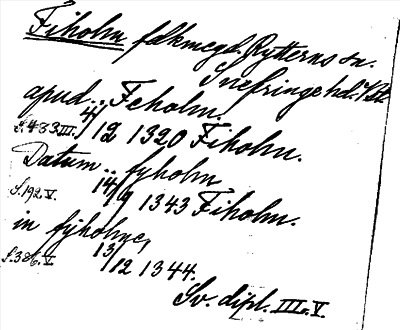 Fiholm fdkmcgd. Rytterns sn.
Snefringe hd. Vstl
apud.. Feholm.
S. 483 III. 4/12 1320 Fiholm.
Datum.. fyholm
S. 192 V. 14/9 1343 Fiholm.
in fyholme,
S. 386. V. 13/12 1344.
Sv. dipl. III. V.